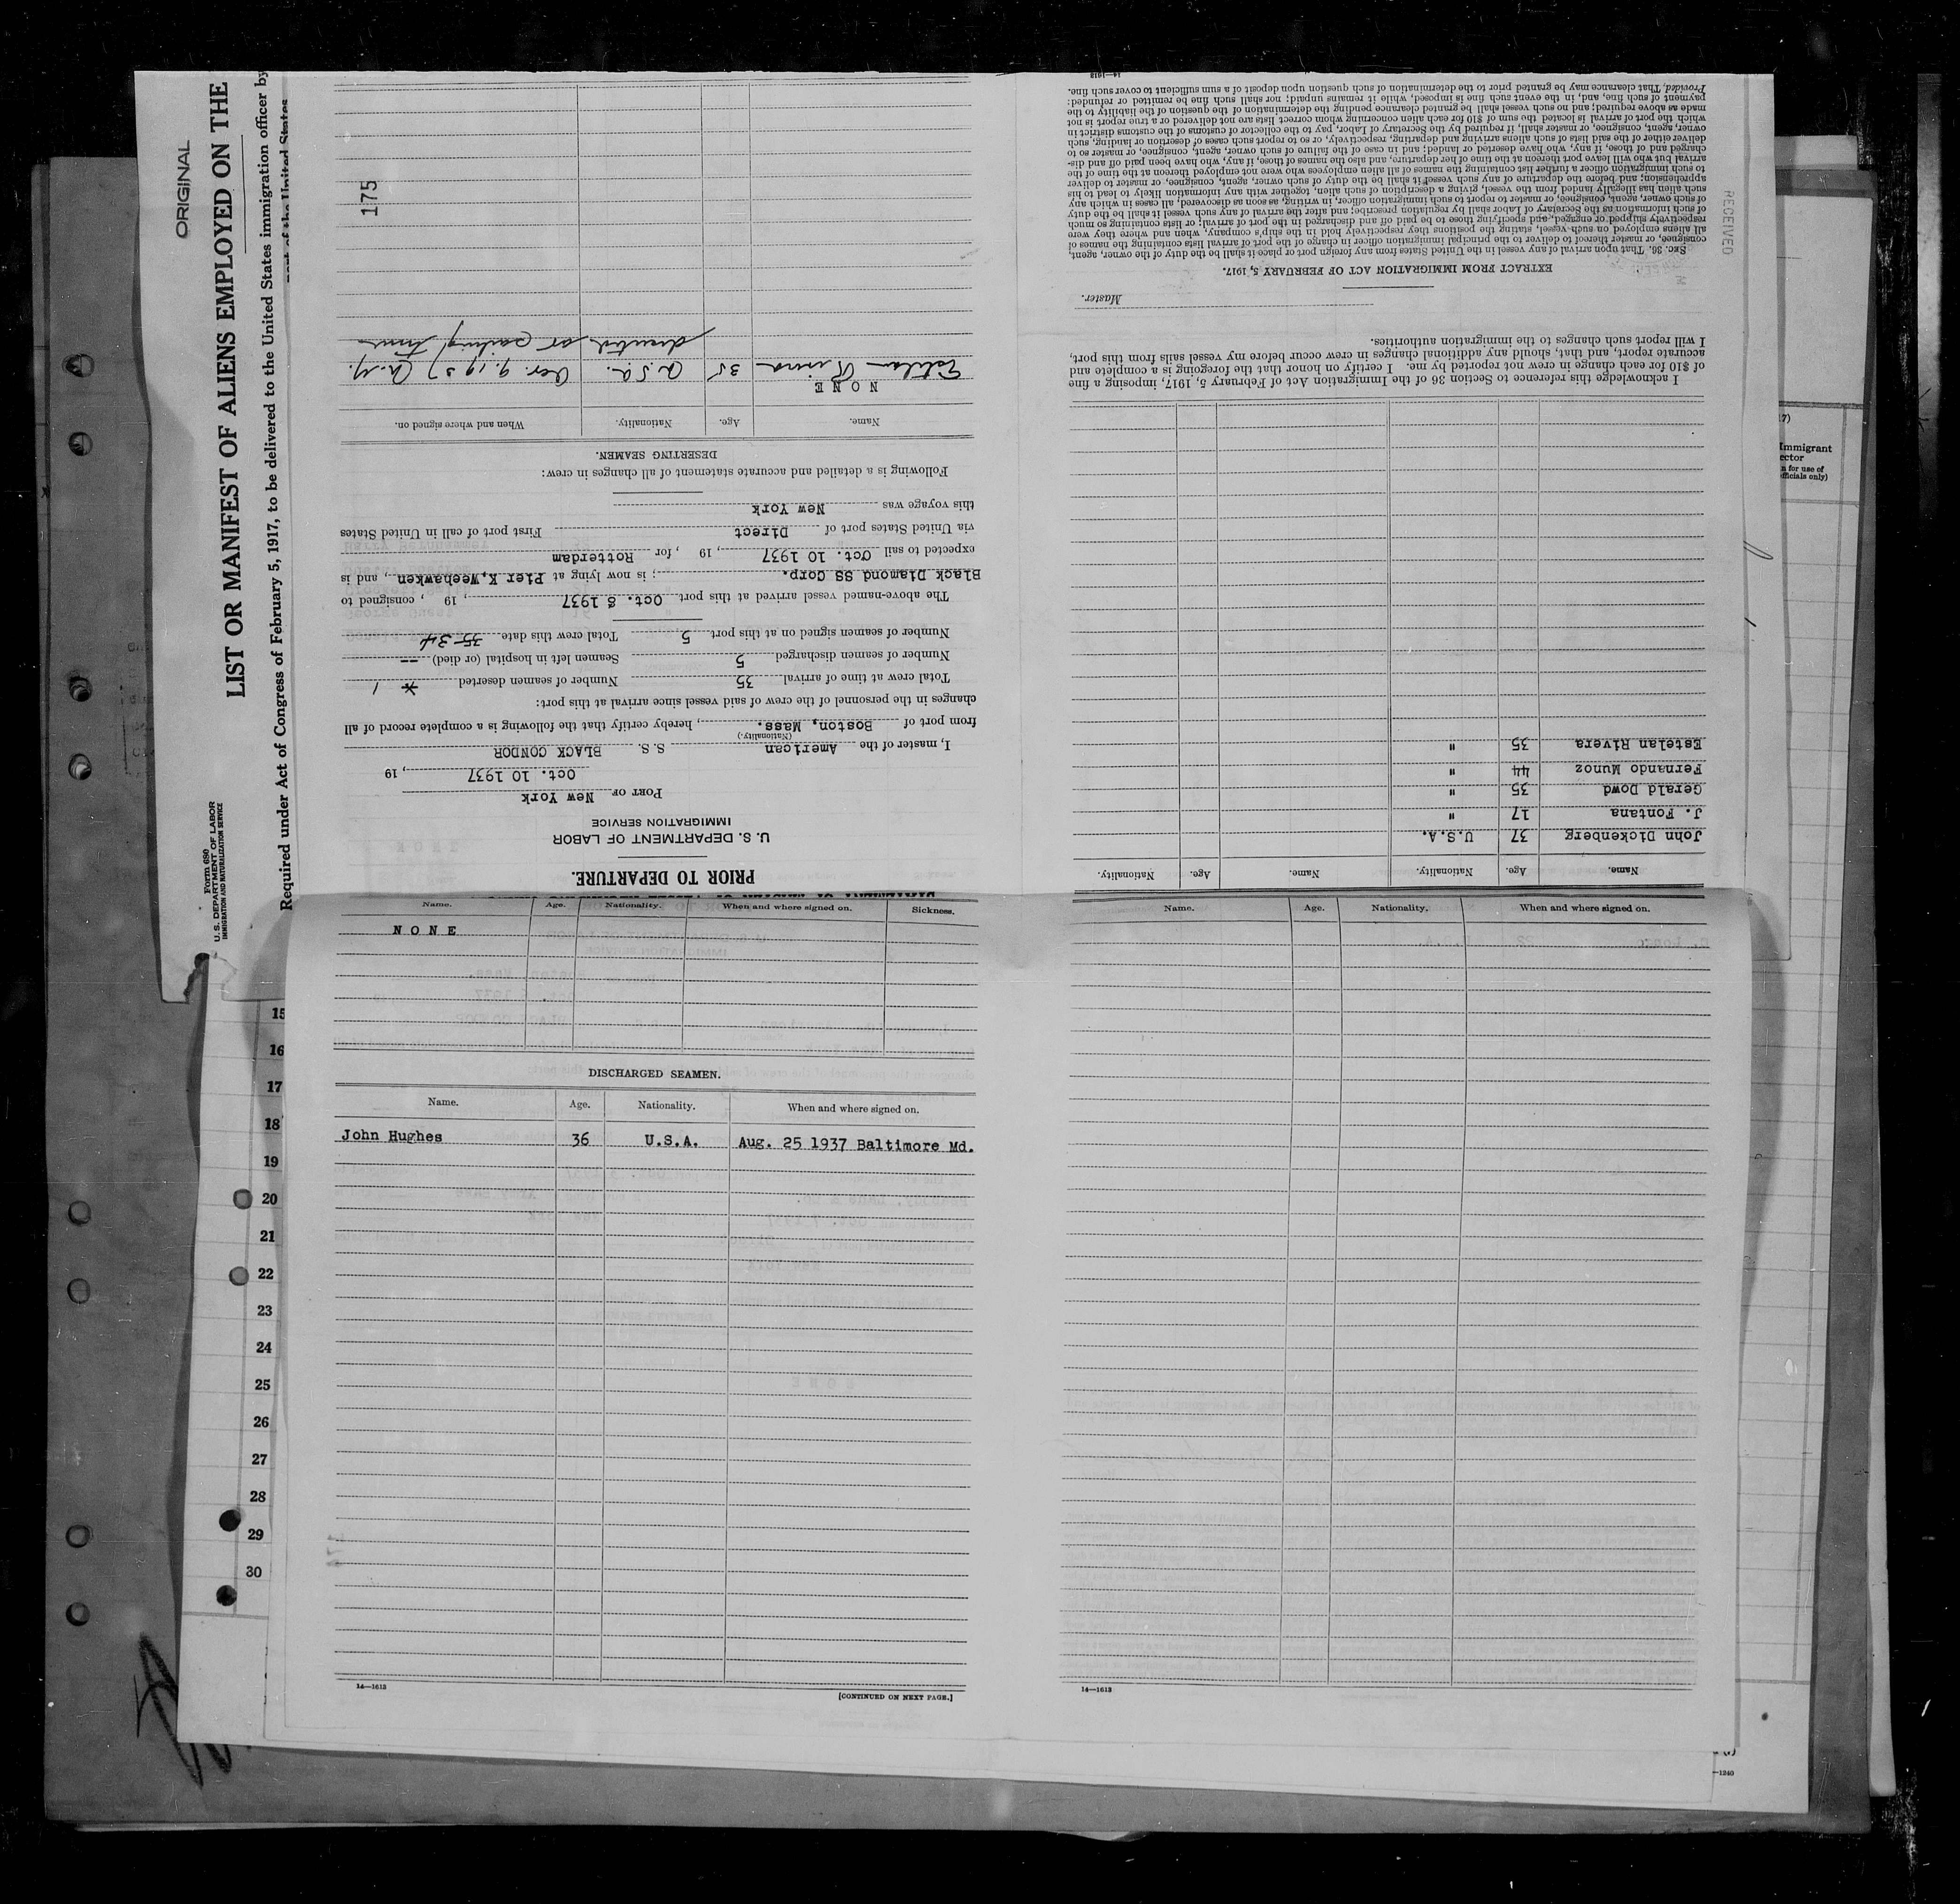 ORIGINAL
Form 680
U. S. DEPARTMENT OF LABOR
IMMIGRATION AND NATURALIZATION SERVICE
LIST OR MANIFEST OF ALIENS EMPLOYED ON THE
Required under Act of Congress of February 5, 1917, to be delivered to the United States immigration officer by
port of the United States
PRIOR TO DEPARTURE.
U. S. DEPARTMENT OF LABOR
IMMIGRATION SERVICE
PORT OF New York
Oct. 10 1937, 19
I, master of the American S. S. BLACK CONDOR
(Nationality.)
from port of Boston, Mass., hereby certify that the following is a complete record of all
changes in the personnel of the crew of said vessel since arrival at this port:
Total crew at time of arrival 35 Number of seamen deserted 1
Number of seamen discharged 5 Seamen left in hospital (or died) --
Number of seamen signed on at this port 5 Total crew this date 35 34
The above-named vessel arrived at this port Oct. 8 1937, 19 , consigned to
Black Diamond SS Corp. ; is now lying at Pier K, Weehawken, and is
expected to sail Oct. 10 1937, 19 , for Rotterdam
via United States port of Direct First port of call in United States
this voyage was New York
Following is a detailed and accurate statement of all changes in crew:
DESERTING SEAMEN.
Name. Age. Nationality. When and where signed on.
N O N E
Estelan Rivera 35 U.S.A. Oct. 9. 1937 N.Y.
deserted at sailing time
175
Name. Age. Nationality. Name. Age. Nationality.
John Dickenberg 37 U.S.A.
J. Fontana 17 "
Gerald Dowd 35 "
Fernando Munoz 44 "
Estelan Rivera 35 "
I acknowledge this reference to Section 36 of the Immigration Act of February 5, 1917, imposing a fine
of $10 for each change in crew not reported by me. I certify on honor that the foregoing is a complete and
accurate report, and that, should any additional changes in crew occur before my vessel sails from this port,
I will report such changes to the immigration authorities.
Master.
EXTRACT FROM IMMIGRATION ACT OF FEBRUARY 5, 1917.
SEC. 36. That upon arrival of any vessel in the United States from any foreign port or place it shall be the duty of the owner, agent,
consignee, or master thereof to deliver to the principal immigration officer in charge of the port of arrival lists containing the names of
all aliens employed on such vessel, stating the positions they respectively hold in the ship's company, when and where they were
respectively shipped or engaged, and specifying those to be paid off and discharged in the port of arrival; or lists containing so much
of such information as the Secretary of Labor shall by regulation prescribe; and after the arrival of any such vessel it shall be the duty
of such owner, agent, consignee, or master to report to such immigration officer, in writing, as soon as discovered, all cases in which any
such alien has illegally landed from the vessel, giving a description of such alien, together with any information likely to lead to his
apprehension; and before the departure of any such vessel it shall be the duty of such owner, agent, consignee, or master to deliver
to such immigration officer a further list containing the names of all alien employees who were not employed thereon at the time of the
arrival but who will leave port thereon at the time of her departure, and also the names of those, if any, who have been paid off and dis-
charged and of those, if any, who have deserted or landed; and in case of the failure of such owner, agent, consignee, or master so to
deliver either of the said lists of such aliens arriving and departing, respectively, or so to report such cases of desertion or landing, such
owner, agent, consignee, or master shall, if required by the Secretary of Labor, pay to the collector of customs of the customs district in
which the port of arrival is located the sum of $10 for each alien concerning whom correct lists are not delivered or a true report is not
made as above required; and no such vessel shall be granted clearance pending the determination of the question of the liability to the
payment of such fine, and, in the event such fine is imposed, while it remains unpaid; nor shall such fine be remitted or refunded:
Provided, That clearance may be granted prior to the determination of such question upon deposit of a sum sufficient to cover such fine.
14—1613
RECEIVED
7)
Immigrant
ector
n for use of
fficials only)
Name. Age. Nationality. When and where signed on. Sickness.
N O N E
DISCHARGED SEAMEN.
Name. Age. Nationality. When and where signed on.
John Hughes 36 U.S.A. Aug. 25 1937 Baltimore Md.
14—1613
[CONTINUED ON NEXT PAGE.]
Name. Age. Nationality. When and where signed on.
14—1613
15
16
17
18
19
20
21
22
23
24
25
26
27
28
29
30
—1240